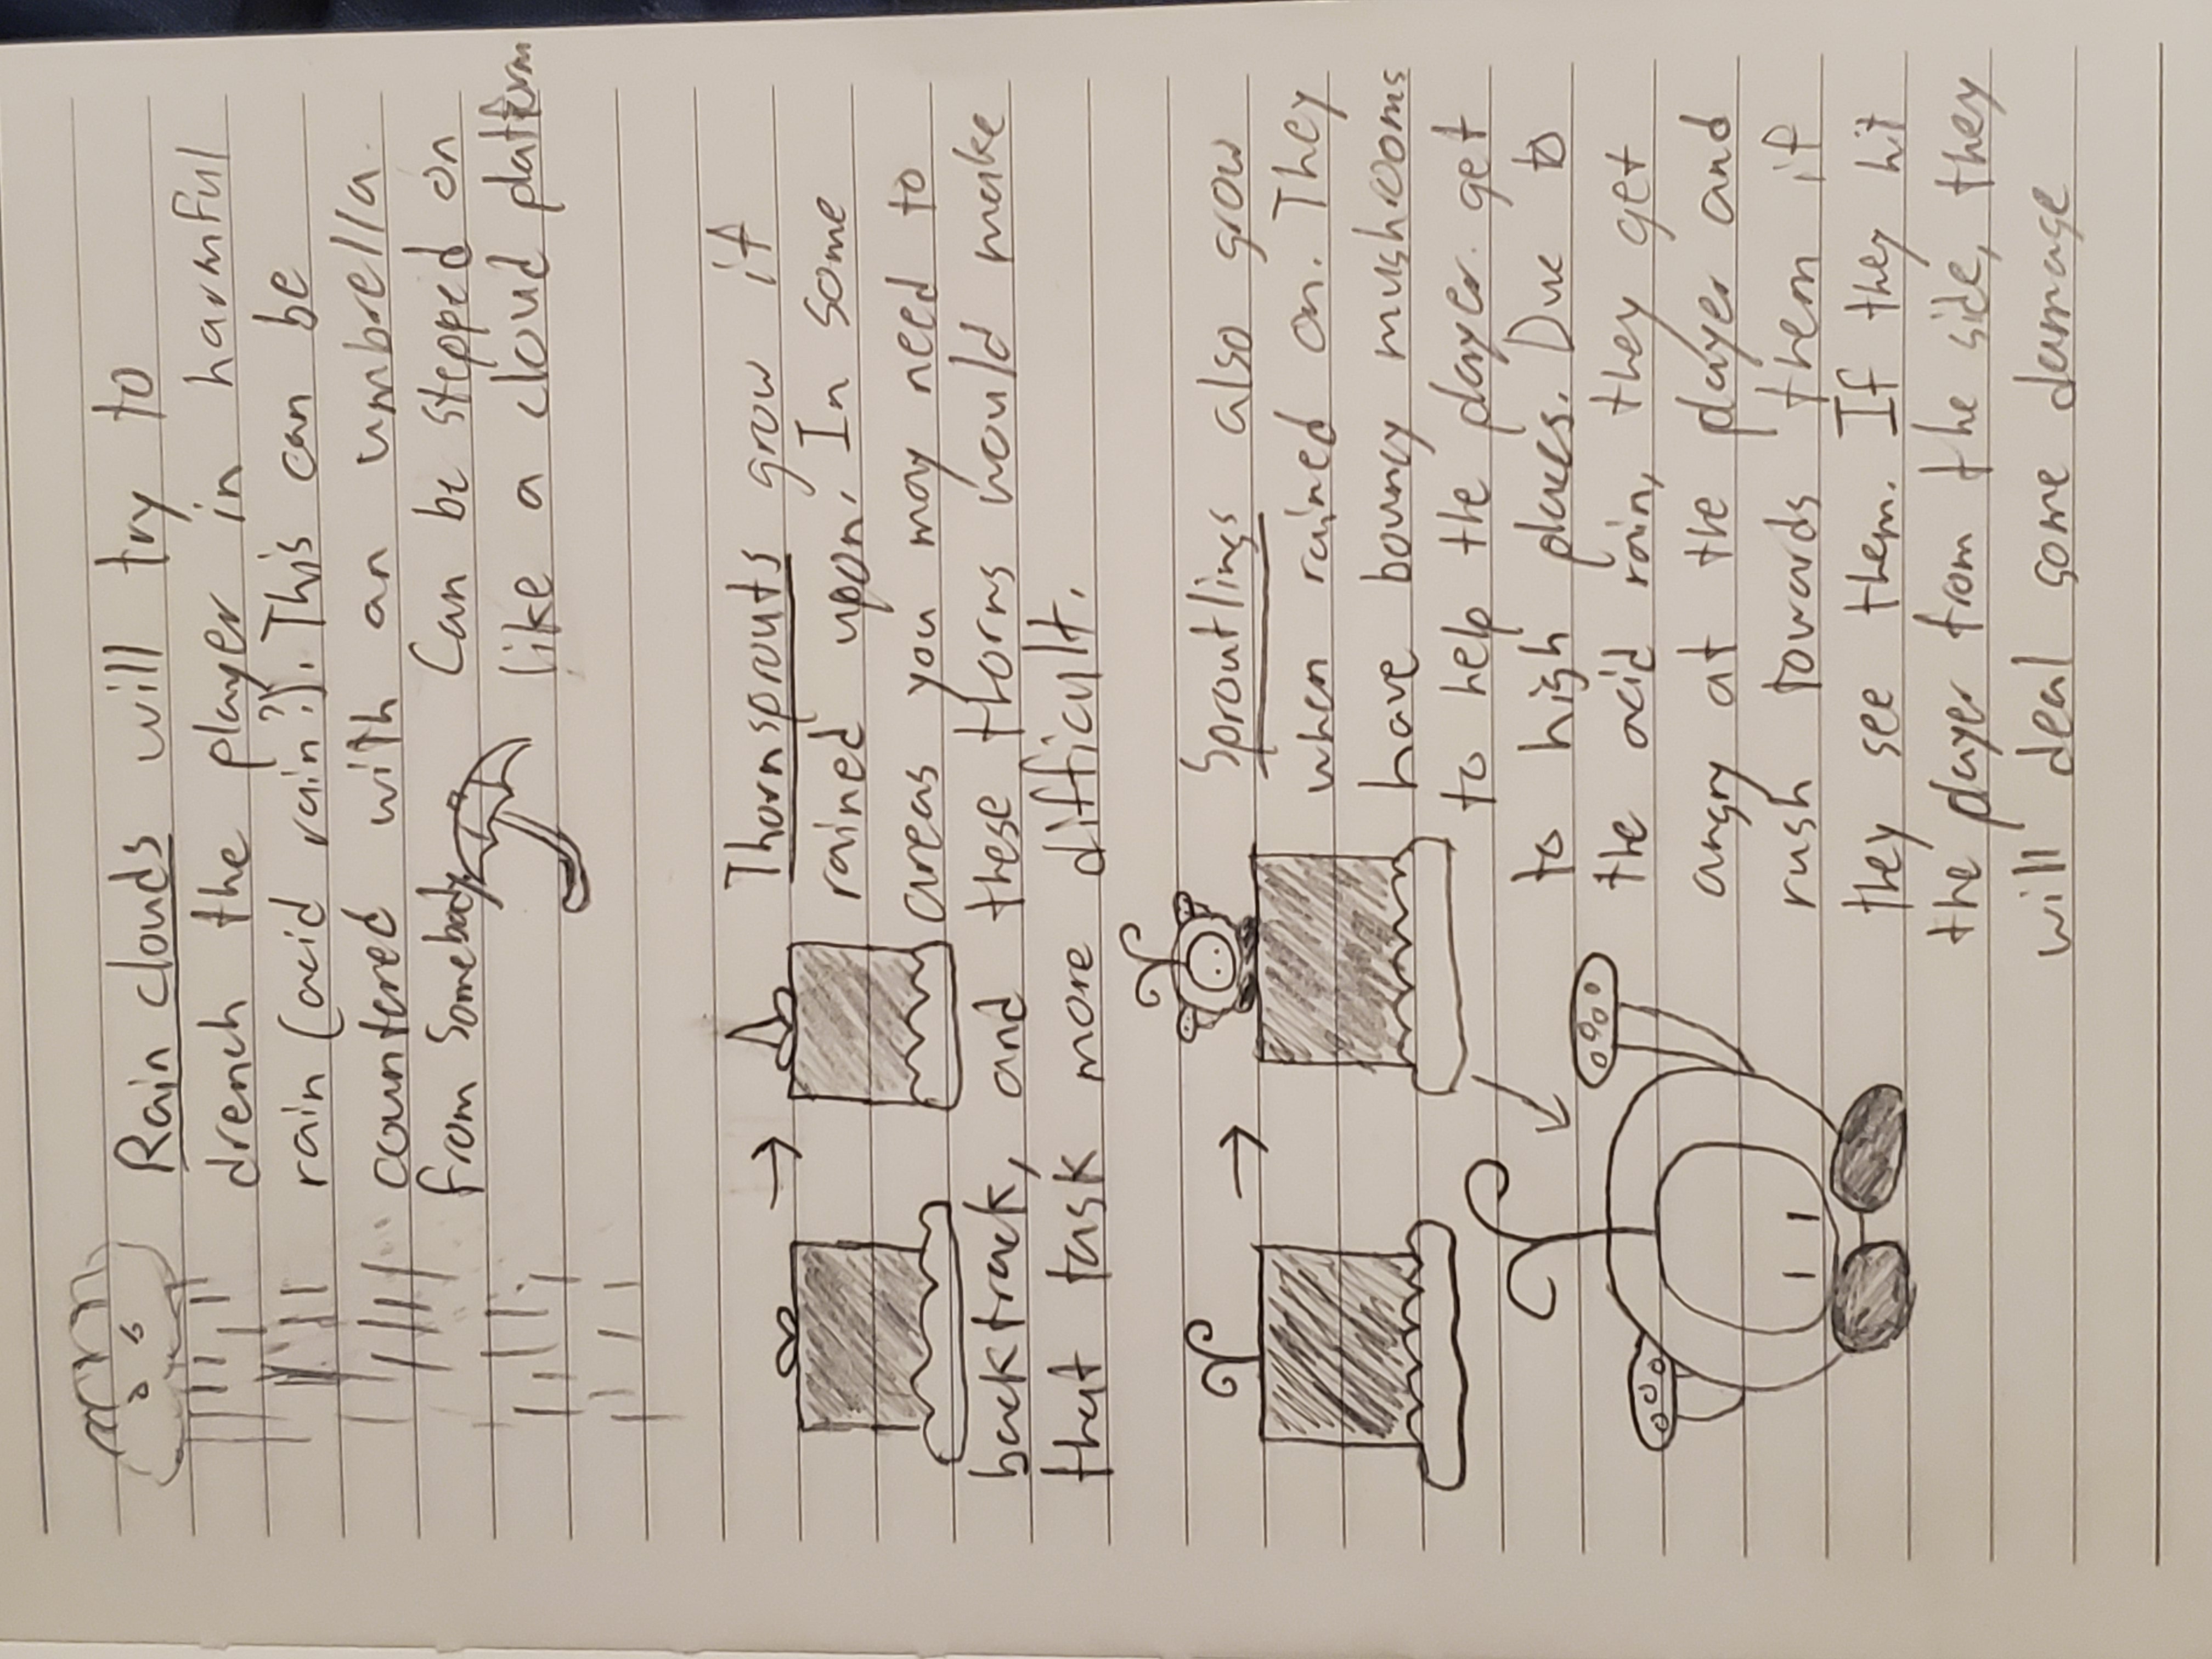 Rain clouds will try to
drench the player in harmful
rain (acid rain?). This can be
countered with an umbrella.
from Somebody Can be stepped on
like a cloud platform
Thornsprouts grow if
rained upon. In some
areas you may need to
backtrack, and these thorns would make
that task more difficult.
Sproutlings also grow
when rained on. They
have bouncy mushrooms
to help the player get
to high places. Due to
the acid rain, they get
angry at the player and
rush towards them if
they see them. If they hit
the player from the side, they
will deal some damage